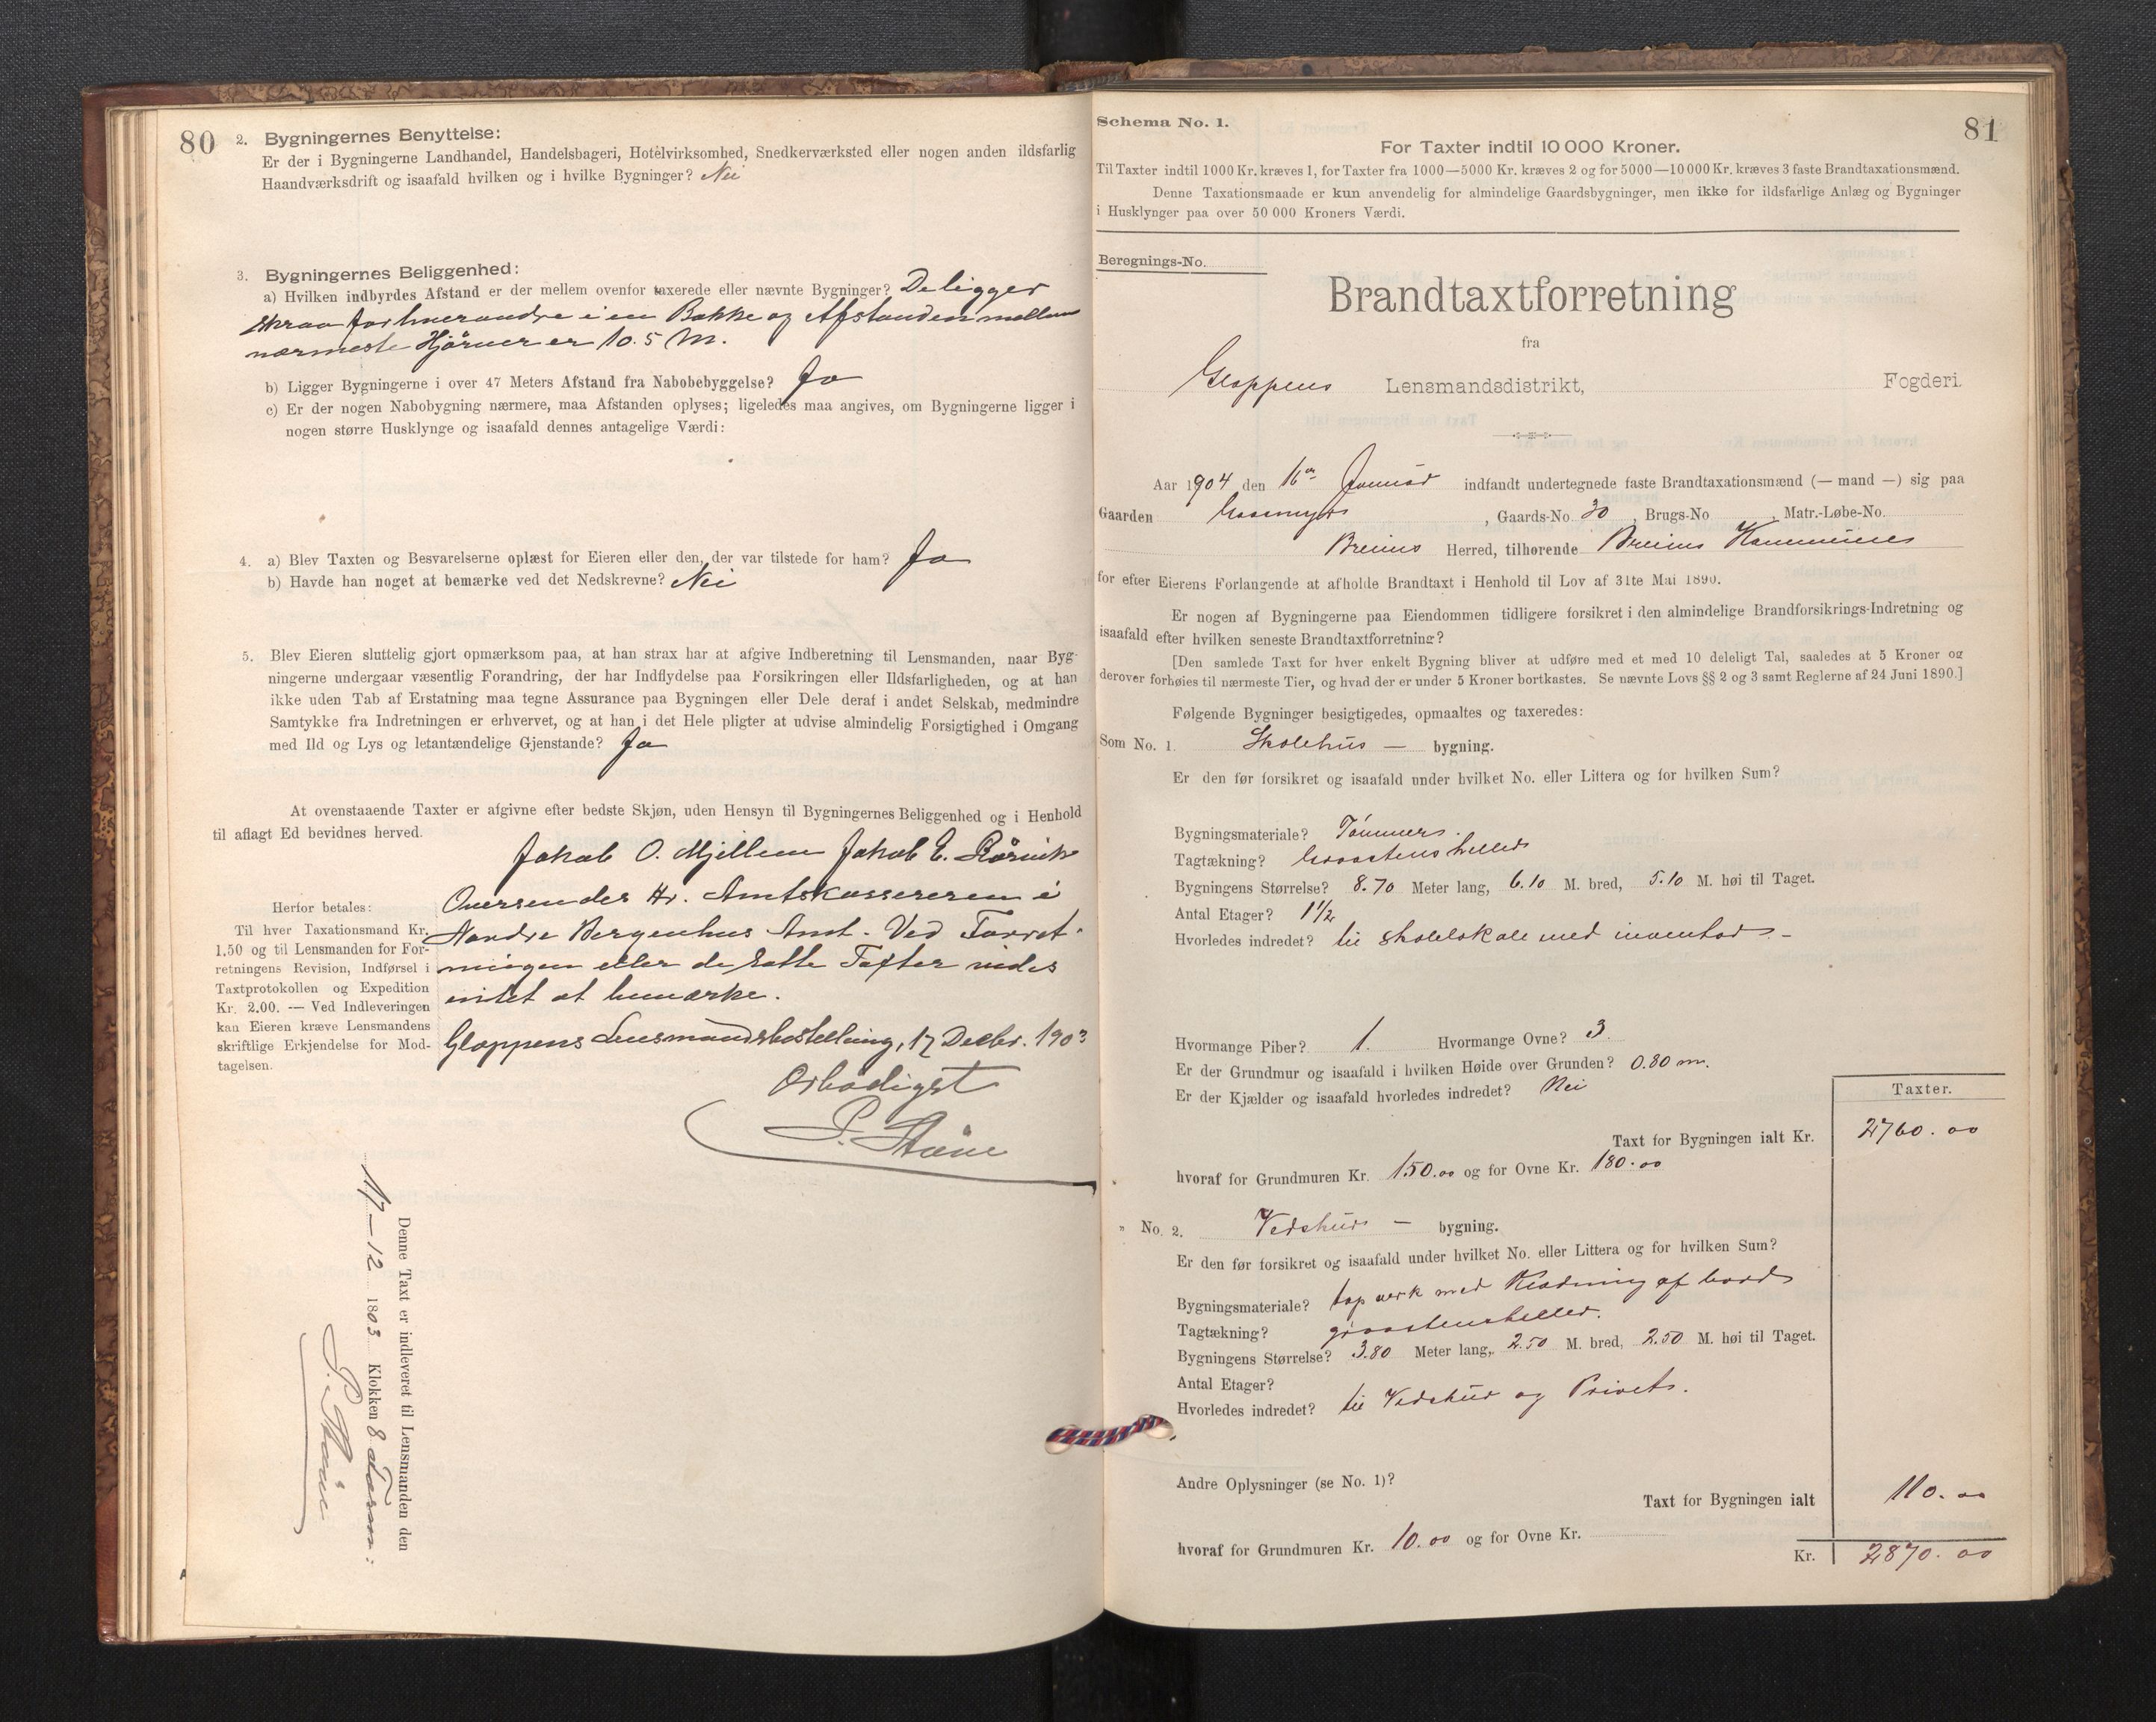 80
2. Bygningernes Benyttelse:
Er der i Bygningerne Landhandel, Handelsbageri, Hotèlvirksomhed, Snedkerværksted eller nogen anden ildsfarlig
Haandværksdrift og isaafald hvilken og i hvilke Bygninger? Nei
3. Bygningernes Beliggenhed:
a) Hvilken indbyrdes Afstand er der mellem ovenfor taxerede eller nævnte Bygninger? De ligger
skraa for hverandre i en Bakke og Afstanden mellem
nærmeste Hjørner er 10.5 M.
b) Ligger Bygningerne i over 47 Meters Afstand fra Nabobebyggelse? Ja
c) Er der nogen Nabobygning nærmere, maa Afstanden oplyses; ligeledes maa angives, om Bygningerne ligger i
nogen større Husklynge og isaafald dennes antagelige Værdi:
4. a) Blev Taxten og Besvarelserne oplæst for Eieren eller den, der var tilstede for ham? Ja
b) Havde han noget at bemærke ved det Nedskrevne? Nei
5. Blev Eieren sluttelig gjort opmærksom paa, at han strax har at afgive Indberetning til Lensmanden, naar Byg-
ningerne undergaar væsentlig Forandring, der har Indflydelse paa Forsikringen eller Ildsfarligheden, og at han
ikke uden Tab af Erstatning maa tegne Assurance paa Bygningen eller Dele deraf i andet Selskab, medmindre
Samtykke fra Indretningen er erhvervet, og at han i det Hele pligter at udvise almindelig Forsigtighed i Omgang
med Ild og Lys og letantændelige Gjenstande? Ja
At ovenstaaende Taxter er afgivne efter bedste Skjøn, uden Hensyn til Bygningernes Beliggenhed og i Henhold
til aflagt Ed bevidnes herved.
Jakob O. Mjellem Jakob E.
Oversendes Hr. Amtskassereren i
Nordre Bergenhus Amt. Ved Forret-
ningen eller de satte Taxter vides
intet at bemærke.
Gloppens Lensmandsbestilling, 17 Decbr. 1903
Ærbødigst
P. Støve
Herfor betales:
Til hver Taxationsmand Kr.
1.50 og til Lensmanden for For-
retningens Revision, Indførsel i
Taxtprotokollen og Expedition
Kr. 2.00. — Ved Indleveringen
kan Eieren kræve Lensmandens
skriftlige Erkjendelse for Mod-
tagelsen.
Denne Taxt er indleveret til Lensmanden den
17-12 1803 Klokken 8 Form:
P. Støve
81
Schema No. 1.
For Taxter indtil 10 000 Kroner.
Til Taxter indtil 1000 Kr. kræves 1, for Taxter fra 1000—5000 Kr. kræves 2 og for 5000—10 000 Kr. kræves 3 faste Brandtaxationsmænd.
Denne Taxationsmaade er kun anvendelig for almindelige Gaardsbygninger, men ikke for ildsfarlige Anlæg og Bygninger
i Husklynger paa over 50 000 Kroners Værdi.
Beregnings-No.
Brandtaxtforretning
fra
Gloppens Lensmandsdistrikt, Fogderi.
Aar 1904 den 16de Januar indfandt undertegnede faste Brandtaxationsmænd (— mand —) sig paa
Gaarden , Gaards-No. 30 , Brugs-No , Matr.-Løbe-No.
Breims Herred, tilhørende Breims Kommune
for efter Eierens Forlangende at afholde Brandtaxt i Henhold til Lov af 31te Mai 1890.
Er nogen af Bygningerne paa Eiendommen tidligere forsikret i den almindelige Brandforsikrings-Indretning og
isaafald efter hvilken seneste Brandtaxtforretning?
[Den samlede Taxt for hver enkelt Bygning bliver at udføre med et med 10 deleligt Tal, saaledes at 5 Kroner og
derover forhøies til nærmeste Tier, og hvad der er under 5 Kroner bortkastes. Se nævnte Lovs §§ 2 og 3 samt Reglerne af 24 Juni 1890.]
Følgende Bygninger besigtigedes, opmaaltes og taxeredes:
Som No. 1. Skolehus — bygning.
Er den før forsikret og isaafald under hvilket No. eller Littera og for hvilken Sum?
Bygningsmateriale? Tømmer.
Tagtækning? Graastensheller
Bygningens Størrelse? 8.70 Meter lang, 6.10 M. bred, 5.10 M. høi til Taget.
Antal Etager? 1½
Hvorledes indredet? til skolelokale med inventar.-
Hvormange Piber? 1. Hvormange Ovne? 3.
Er der Grundmur og isaafald i hvilken Høide over Grunden? 0.80 m.
Er der Kjælder og isaafald hvorledes indredet? Nei
Taxter.
Taxt for Bygningen ialt Kr. 2760.00
hvoraf for Grundmuren Kr. 150.00 og for Ovne Kr. 180.00
" No. 2. Vedskur — bygning.
Er den før forsikret og isaafald under hvilket No. eller Littera og for hvilken Sum?
Bygningsmateriale? verk med Klædning af bord
Tagtækning? graastensheller.
Bygningens Størrelse? 3.80 Meter lang, 2.50 M. bred, 2.50 M. høi til Taget.
Antal Etager?
Hvorledes indredet? til Vedskur og Privet.
Andre Oplysninger (se No. 1)?
Taxt for Bygningen ialt 110.00
hvoraf for Grundmuren Kr. 10.00 og for Ovne Kr.
Kr. 2870.00